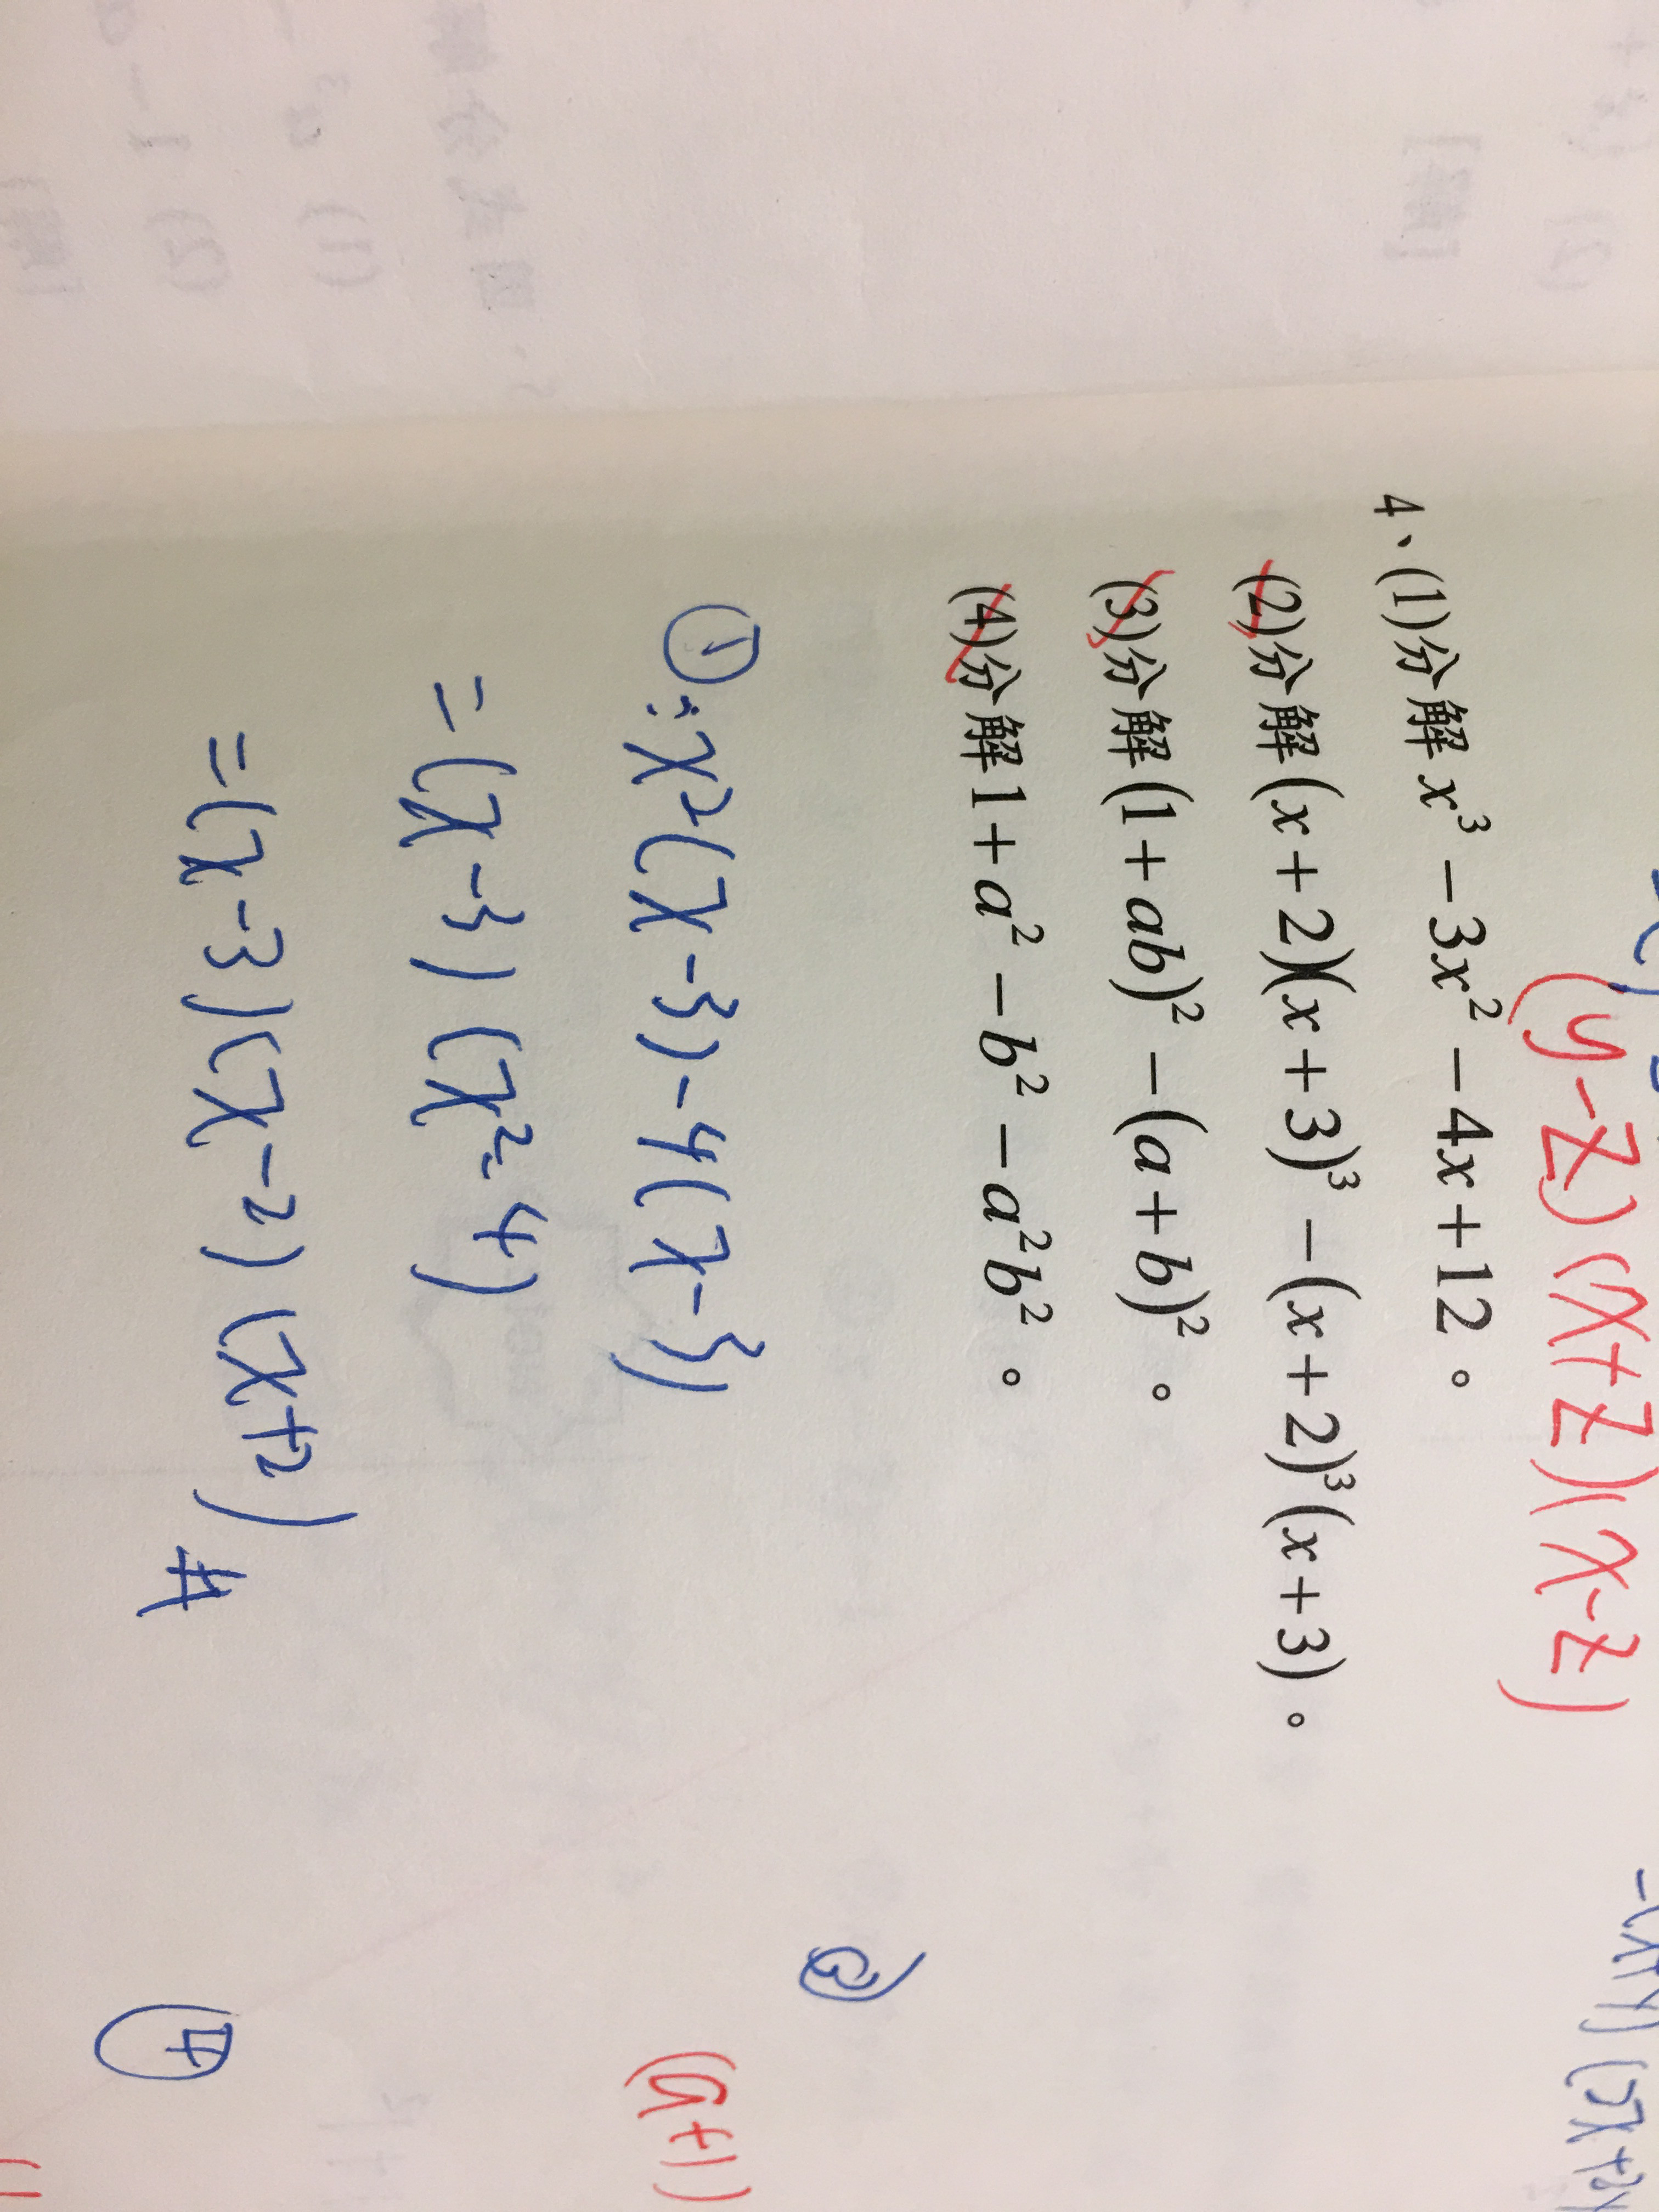 (y-z)(x+z)(x-z)
4、(1)分解 x³ - 3x² - 4x + 12。
(2)分解 (x+2)(x+3)³ - (x+2)³(x+3)。
(3)分解 (1+ab)² - (a+b)²。
(4)分解 1+a² - b² - a²b²。
①: x²(x-3)-4(x-3)
=(x-3)(x²-4)
=(x-3)(x-2)(x+2)#
③
(a+1)
④